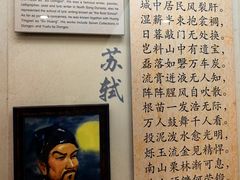 As he is also called "Su Dongpo", he was a famous writer, painter,
calligrapher, poet and lyric writer in North Song Dynasty, who
represented the school of lyric writing known as "the Bold School".
As he was
known as "Su Huang". His works include Seven Collections of
Dongpo, and Yuefu by Dongpo.
苏轼
城中居民风裂骭。
湿薪半束抱衾裯，
日暮敲门无处换。
岂料山中有遗宝，
磊落如磐万车炭。
流膏迸液无人知，
阵阵腥风自吹散。
根苗一发浩无际，
万人鼓舞千人看。
投泥泼水愈光明，
烁玉流金见精悍。
南山栗林渐可息，